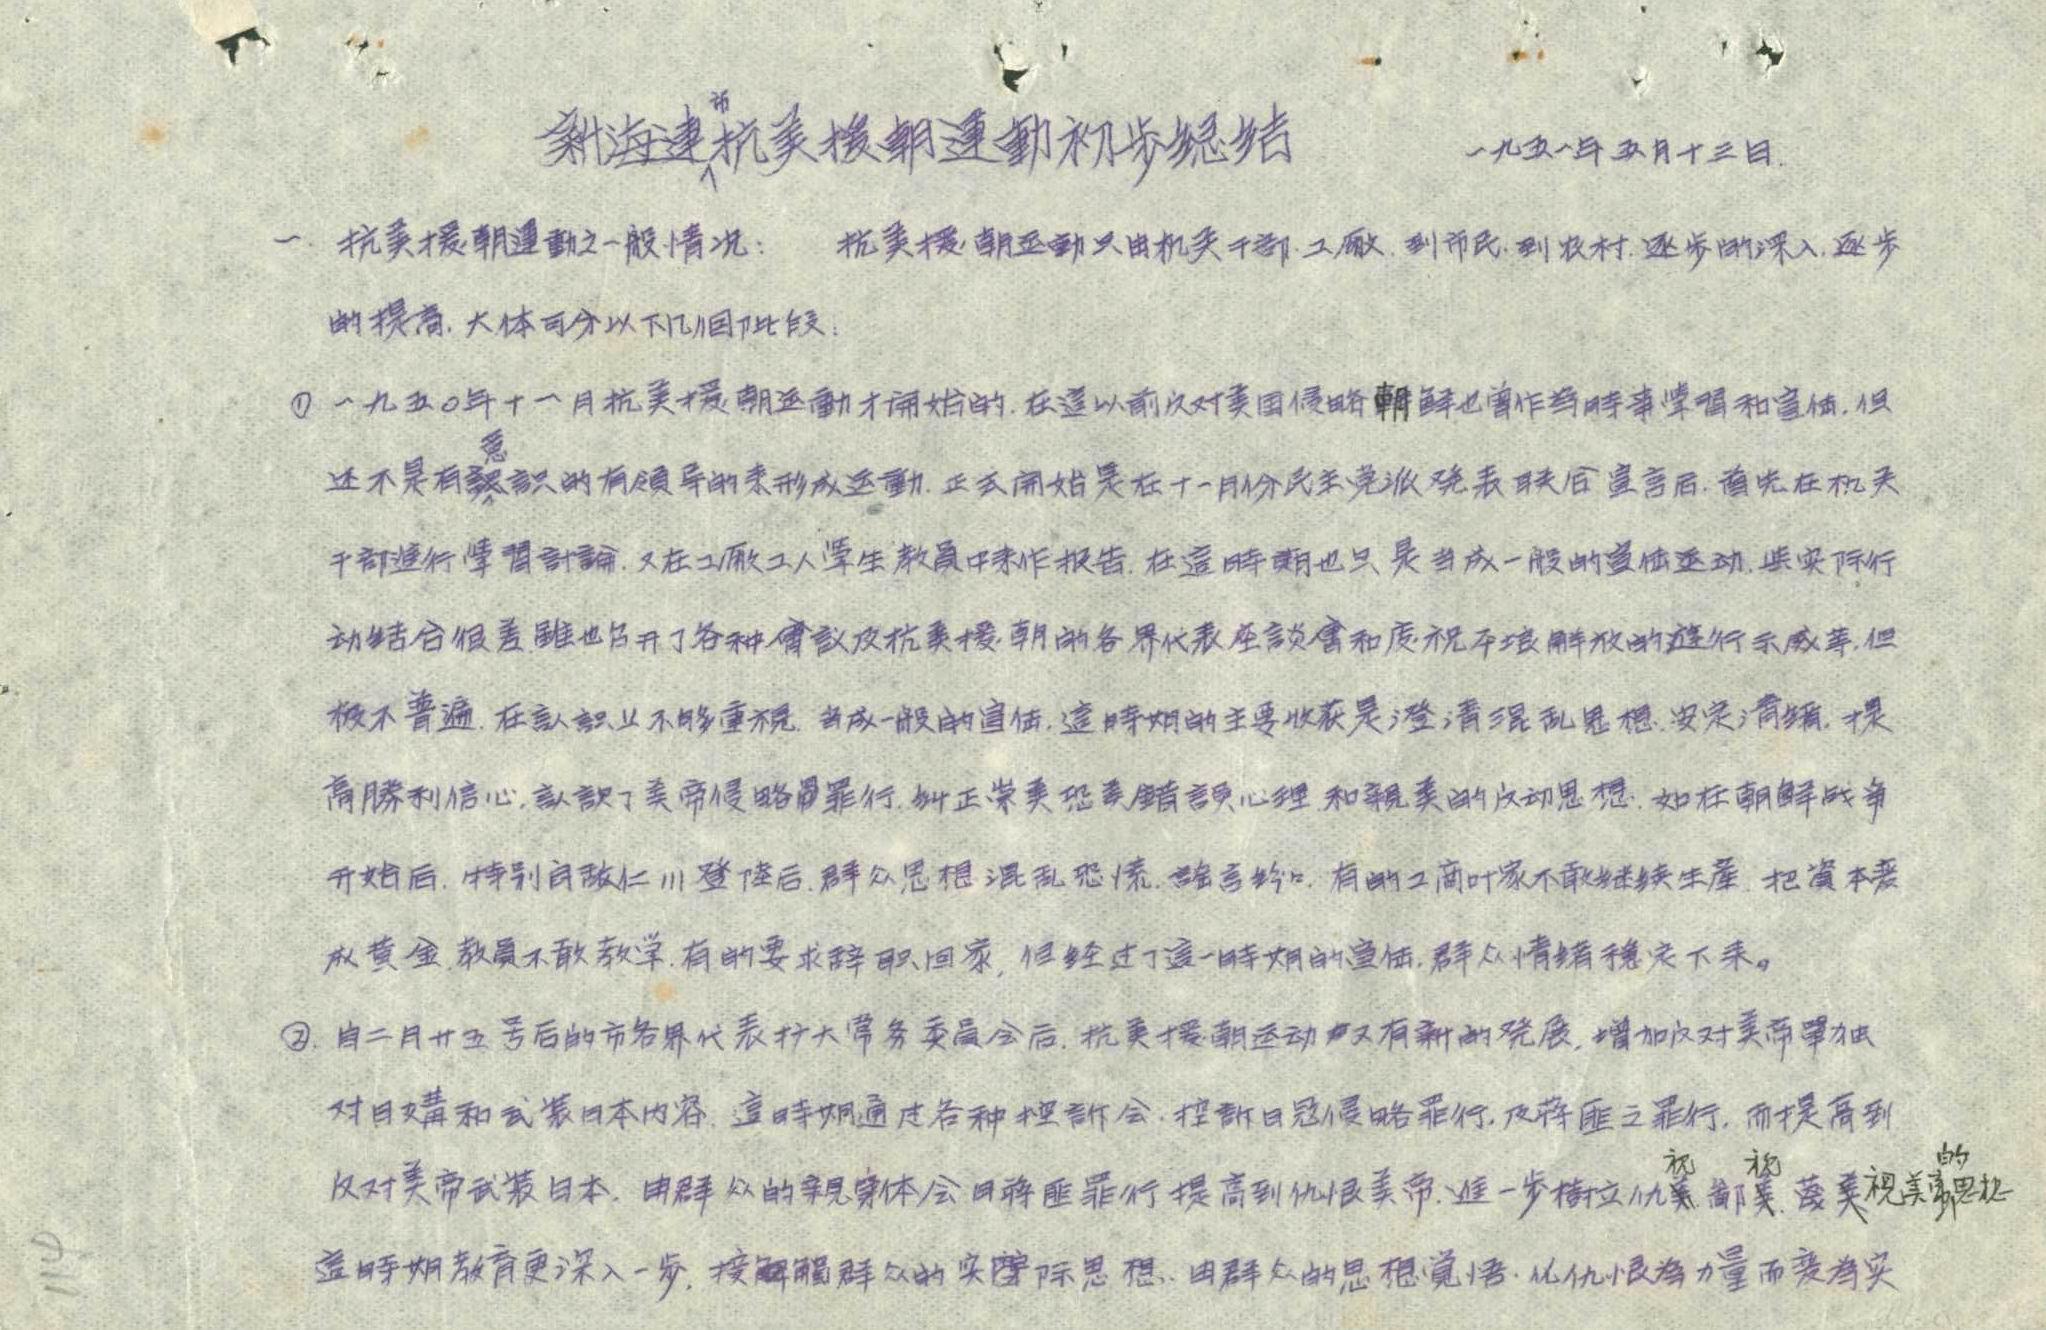 新海連市抗美援朝運動初步総结
一九五一年五月十三日.
一. 抗美援朝運動之一般情况: 抗美援朝运動只由机关干部.工廠.到市民.到农村.逐步的深入.逐步
的提高.大体可分以下几個阶段:
① 一九五〇年十一月抗美援朝运動才開始的.在這以前反对美国侵略朝鮮也曾作為時事学習和宣传.但
还不是有意識的有領导的来形成运動.正式開始是在十一月份民主党派発表联合宣言后.首先在机关
干部進行学習討論.又在工廠工人学生教員中来作报告.在這時期也只是当成一般的宣传运动.与实际行
动结合很差.雖也召开了各种會議及抗美援朝的各界代表座談會和庆祝平壤解放的遊行示威等.但
极不普遍.在認識上不够重視.当成一般的宣传.這時期的主要收获是澄清混乱思想.安定情緒.提
高勝利信心.認識了美帝侵略罪行.纠正崇美恐美錯誤心理.和親美的反动思想.如在朝鮮战争
开始后.特别自敵仁川登陸后.群众思想混乱恐慌.謠言纷纷.有的工商叶家不敢继续生産.把資本变
成黄金.教員不敢教学.有的要求辞职回家,但经过了這一時期的宣传.群众情绪穩定下来。
②. 自二月廿五号后的市各界代表扩大常务委員会后.抗美援朝运动又有新的発展.增加反对美帝單独
对日媾和武装日本内容.這時期通过各种控訴会.控訴日寇侵略罪行.及蒋匪之罪行.而提高到
反对美帝武装日本.由群众的親身体会日蒋匪罪行提高到仇恨美帝.進一步樹立仇視.鄙視.蔑視美帝的思想
這時期教育更深入一步.接觸群众的实际思想.由群众的思想覚悟.化仇恨為力量而变為实